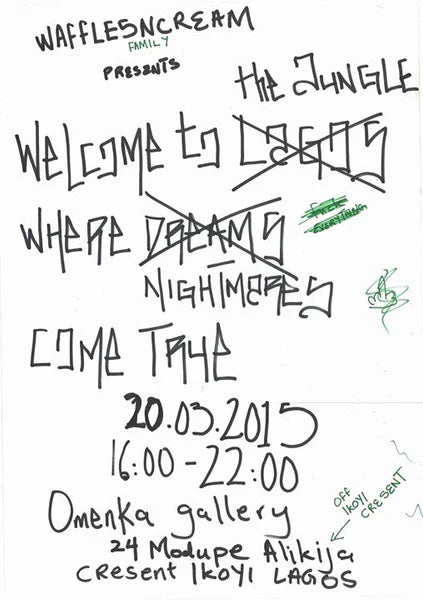 WAFFLESNCREAM
FAMILY
PRESENTS
the JUNGLE
WELCOME to LAGOS
WHERE DREAMS
EVERYTHING
NIGHTMARES
COME TRUE
20.03.2015
16:00 - 22:00
Omenka gallery
OFF
IKOYI
CRESENT
24 Modupe Alikija
CRESENT IKOYI LAGOS